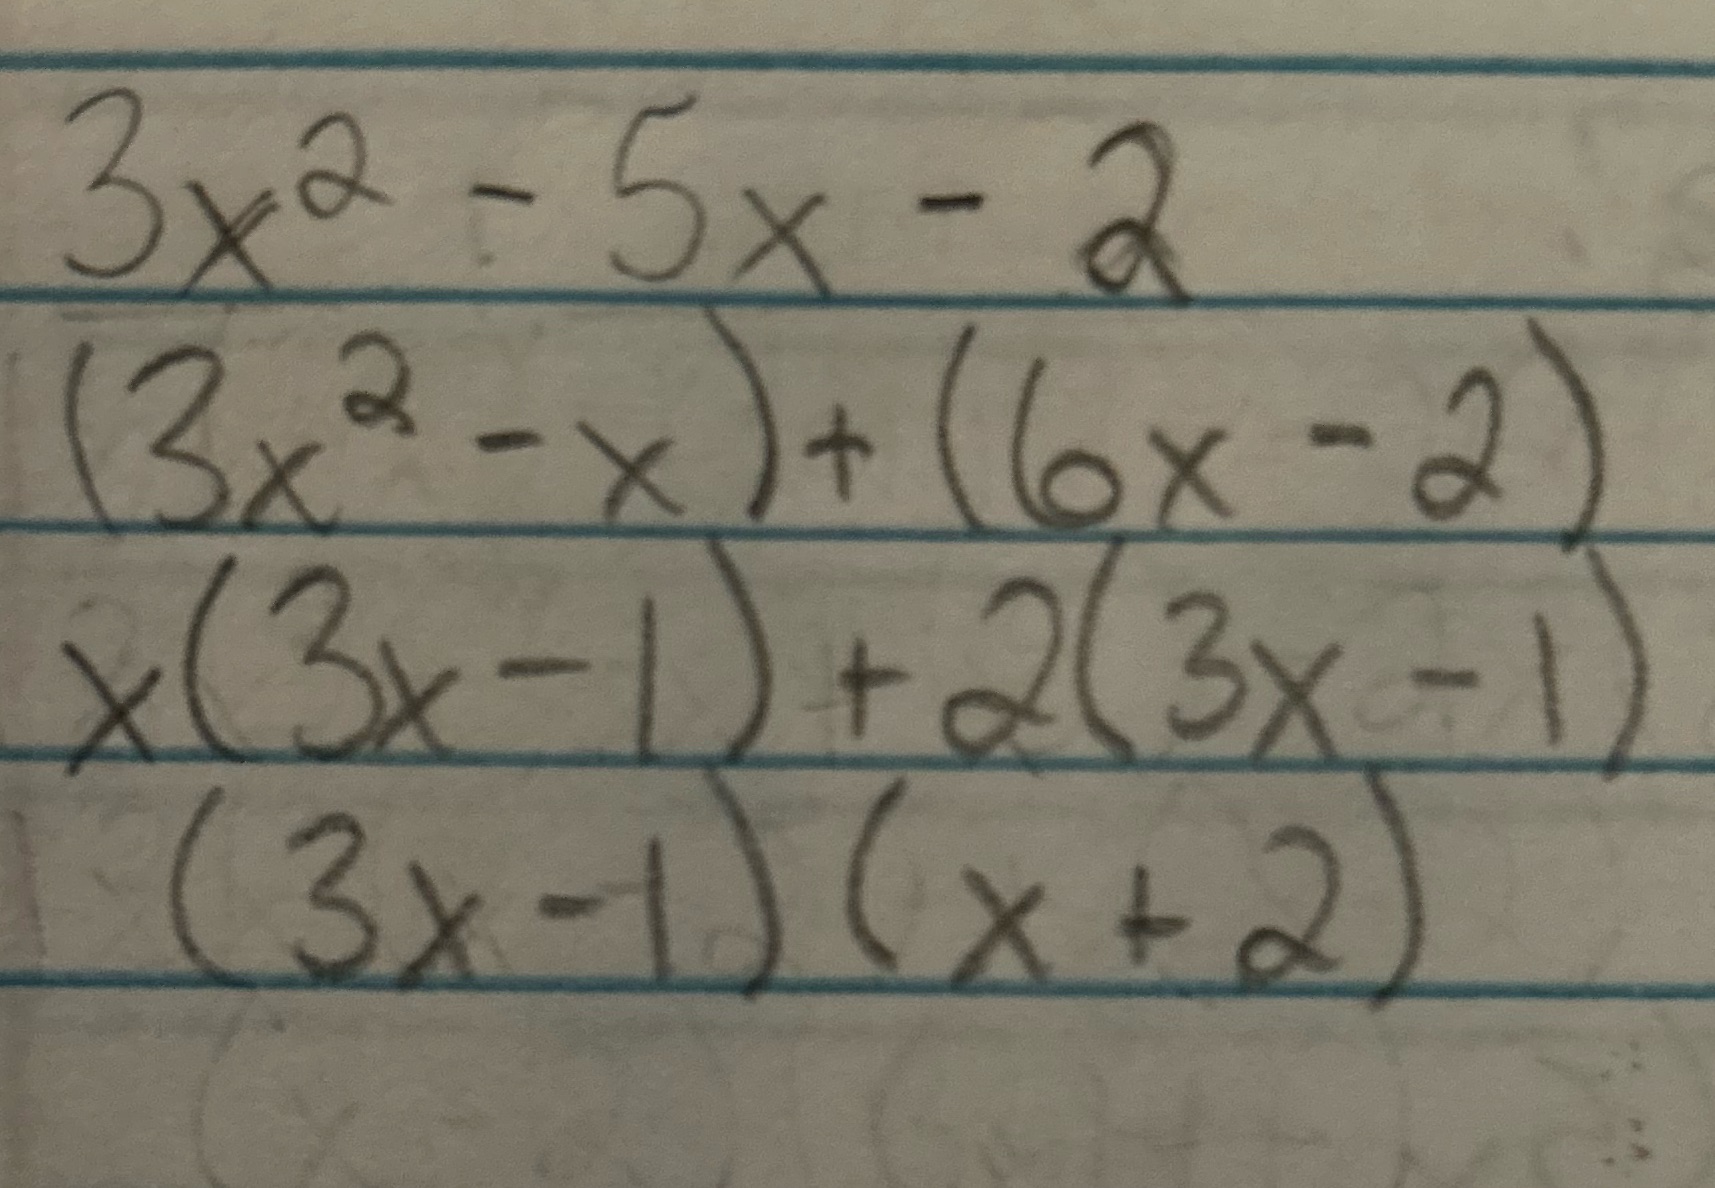 3x² - 5x - 2
(3x² - x) + (6x - 2)
x(3x - 1) + 2(3x - 1)
(3x - 1)(x + 2)